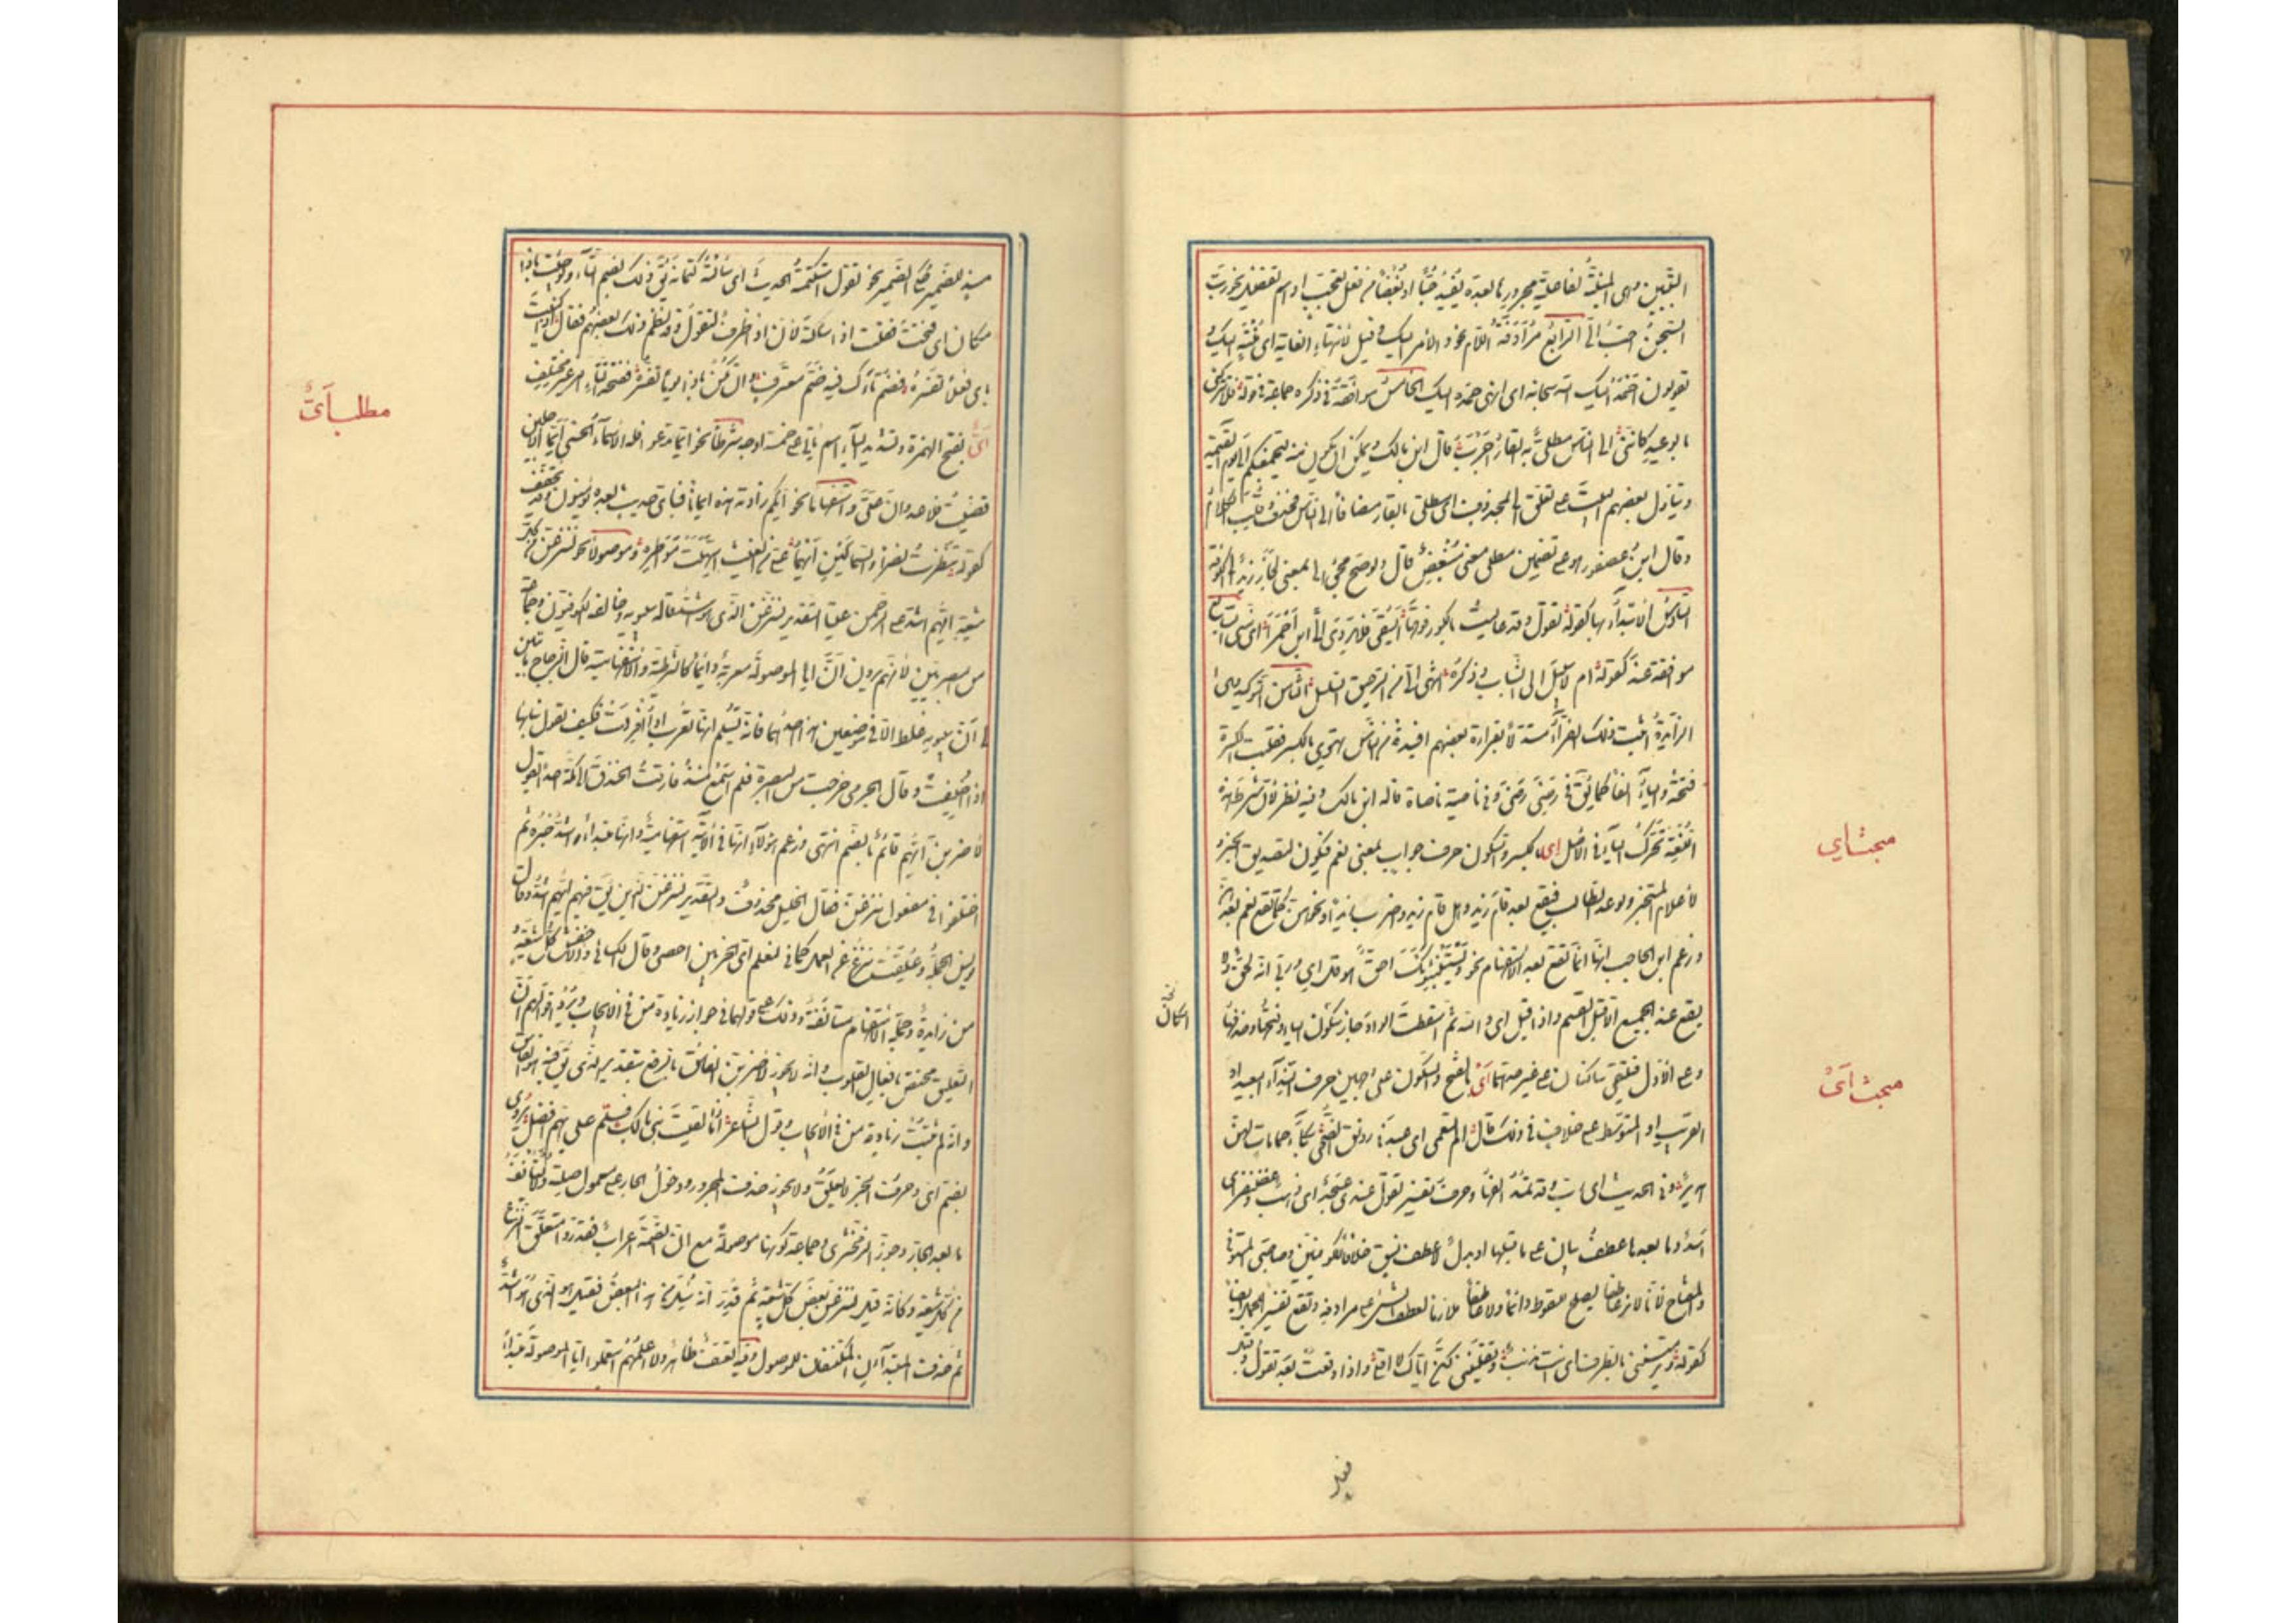 التبيين وهى المبينة لفاعلية مجرورها بعد ما يفيد حبا او بغضا من فعل تعجب او اسم تفضيل نحو رب
السجن احب الى الرابع مرادفة اللام نحو والامر اليك وقيل لانتهاء الغاية اى منته اليك و
يقولون احمد اليك الله سبحانه اى انهى حمده اليك الخامس موافقة فى ذكره جماعة فى قوله فلا تتركنى
بالوعيد كاننى الى الناس مطلى به القار اجرب قال ابن مالك ويمكن ان يكون منه ليجمعنكم الى يوم القيمة
وتاول بعضهم البيت على تعلق الى بمحذوف اى مطلى بالقار مضافا الى الناس فحذف وقلب الكلام
وقال ابن عصفور هو على تضمين مطلى معنى مبغض قال ولو صح مجئ الى بمعنى فى لجاز زيد الى الكوفة
السادس الابتداء بها كقوله تقول وقد عاليت بالكور فوقها ايسقى فلا يروى الى ابن احمرا اى منى السابع
موافقة عند كقوله ام لا سبيل الى الشباب وذكره اشهى الى من الرحيق السلسل الثامن التوكيد وهى
الزايدة اثبت ذلك الفراء مستدلا بقراءة بعضهم افئدة من الناس تهوى بالكسر فقلبت الكسرة
فتحة والياء الفا كما يق فى رضى رضى وفى ناصية ناصاة قاله ابن مالك وفيه نظر لان شرط هذه
اللغة تحرك الياء فى الاصل اى بالكسر والسكون حرف جواب بمعنى نعم فيكون لتصديق المخبر و
لاعلام المستخبر ولوعد الطالب فيقع بعد قام زيد وهل قام زيد واضرب زيدا ونحوهن كما تقع نعم بعدهن
وزعم ابن الحاجب انها انما تقع بعد الاستفهام نحو ويستنبئونك احق هو قل اى وربى انه لحق ولا
يقع عند الجميع الا قبل القسم واذا قيل اى والله ثم اسقطت الواو جاز سكون الياء وفتحها وحذفها
وعلى الاول فيلتقى ساكنان على غير حدهما اى بالفتح والسكون على وجهين حرف لنداء البعيد او
القريب او المتوسط على خلاف فى ذلك قال الم تسمعى اى عبد فى رونق الضحى بكاء حمامات لهن
هدير وفى الحديث اى رب وقد تمد الفها وحرف تفسير تقول عندى عسجد اى ذهب وغضنفر اى
اسد وما بعدها عطف بيان على ما قبلها او بدل لا عطف نسق خلافا للكوفيين وصاحبى المستوفى
والمفتاح لانا لا نر عاطفا يصلح للسقوط دائما ولا عاطفا ملازما لعطف الشئ على مرادفه وتقع تفسيرا للجمل ايضا
كقوله وترميننى بالطرف اى انت مذنب وتقليننى لكن اياك لا اقلى واذا وقعت بعد تقول وقبل
مبحث اى
مبحث اى
فعل
مسند للضمير حكى الضمير نحو تقول استكتمته الحديث اى سألته كتمانه يق ذلك بضم التاء ولو جئت باذا
مكان اى فتحت فقلت اذا سألته لان اذا ظرف لتقول وقد نظم ذلك بعضهم فقال اذا كنيت
باى فعلا تفسره فضم تاءك فيه ضم معترف وان تكن باذا يوما تفسره ففتحة التاء امر غير مختلف
اى بفتح الهمزة وتشديد الياء اسم ياتى على خمسة اوجه شرطا نحو ايا ما تدعو فله الاسماء الحسنى ايما الاجلين
قضيت فلا عدوان على واستفهاما نحو ايكم زادته هذه ايمانا فباى حديث بعده يؤمنون وقد تخفف
كقوله تنظرت نصرا والسماكين ايهما على من الغيث استهلت مواطره وموصولا نحو لننزعن من كل
شيعة ايهم اشد على الرحمن عتيا التقدير لننزعن الذى هو اشد قاله سيبويه وخالفه الكوفيون وجماعة
من البصريين لانهم يرون ان ايا الموصولة معربة دائما كالشرطية والاستفهامية قال الزجاج ما تبين
لى ان سيبويه غلط الا فى موضعين هذا احدهما فانه يسلم انها تعرب اذا افردت فكيف تقول ببنائها
اذا اضيفت وقال الجرمى خرجت من البصرة فلم اسمع منذ فارقت الخندق الى مكة احدا يقول
لاضربن ايهم قائم بالضم انتهى وزعم هؤلاء انها فى الاية استفهامية وانها مبتداء واشد خبره ثم
اختلفوا فى مفعول ننزع فقال الخليل محذوف والتقدير لننزعن الذين يق فيهم ايهم اشد وقال
يونس الجملة وعلقت ننزع عن العمل كما فى لنعلم اى الحزبين احصى وقال الكسائى والاخفش كل شيعة
من زايدة وجملة الاستفهام مستانفة وذلك على قولهما فى جواز زيادة من فى الايجاب ويرد اقوالهم ان
التعليق مختص بافعال القلوب وانه لا يجوز لاضربن الفاسق بالرفع بتقدير الذى يق فيه هو الفاسق
وانه لم يثبت زيادة من فى الايجاب وقول الشاعر اذا لقيت بنى مالك فسلم على ايهم افضل يروى
بضم اى وحروف الجر لا تعلق ولا يجوز حذف المجرور ودخول الجار على معمول صلته ولا يستانف
ما بعد الجار وجوز الزمخشرى وجماعة كونها موصولة مع ان الضمة اعراب فقدروا متعلق النزع
من كل شيعة وكانه قيل لننزعن بعض كل شيعة ثم قدر انه سئل من هذا البعض فقيل هو الذى هو اشد
ثم حذف المبتدآن المكتنفان للموصول وفيه تعسف ظاهر ولا اعلمهم استعملوا ايا الموصولة مبتدأ
مطلب اى